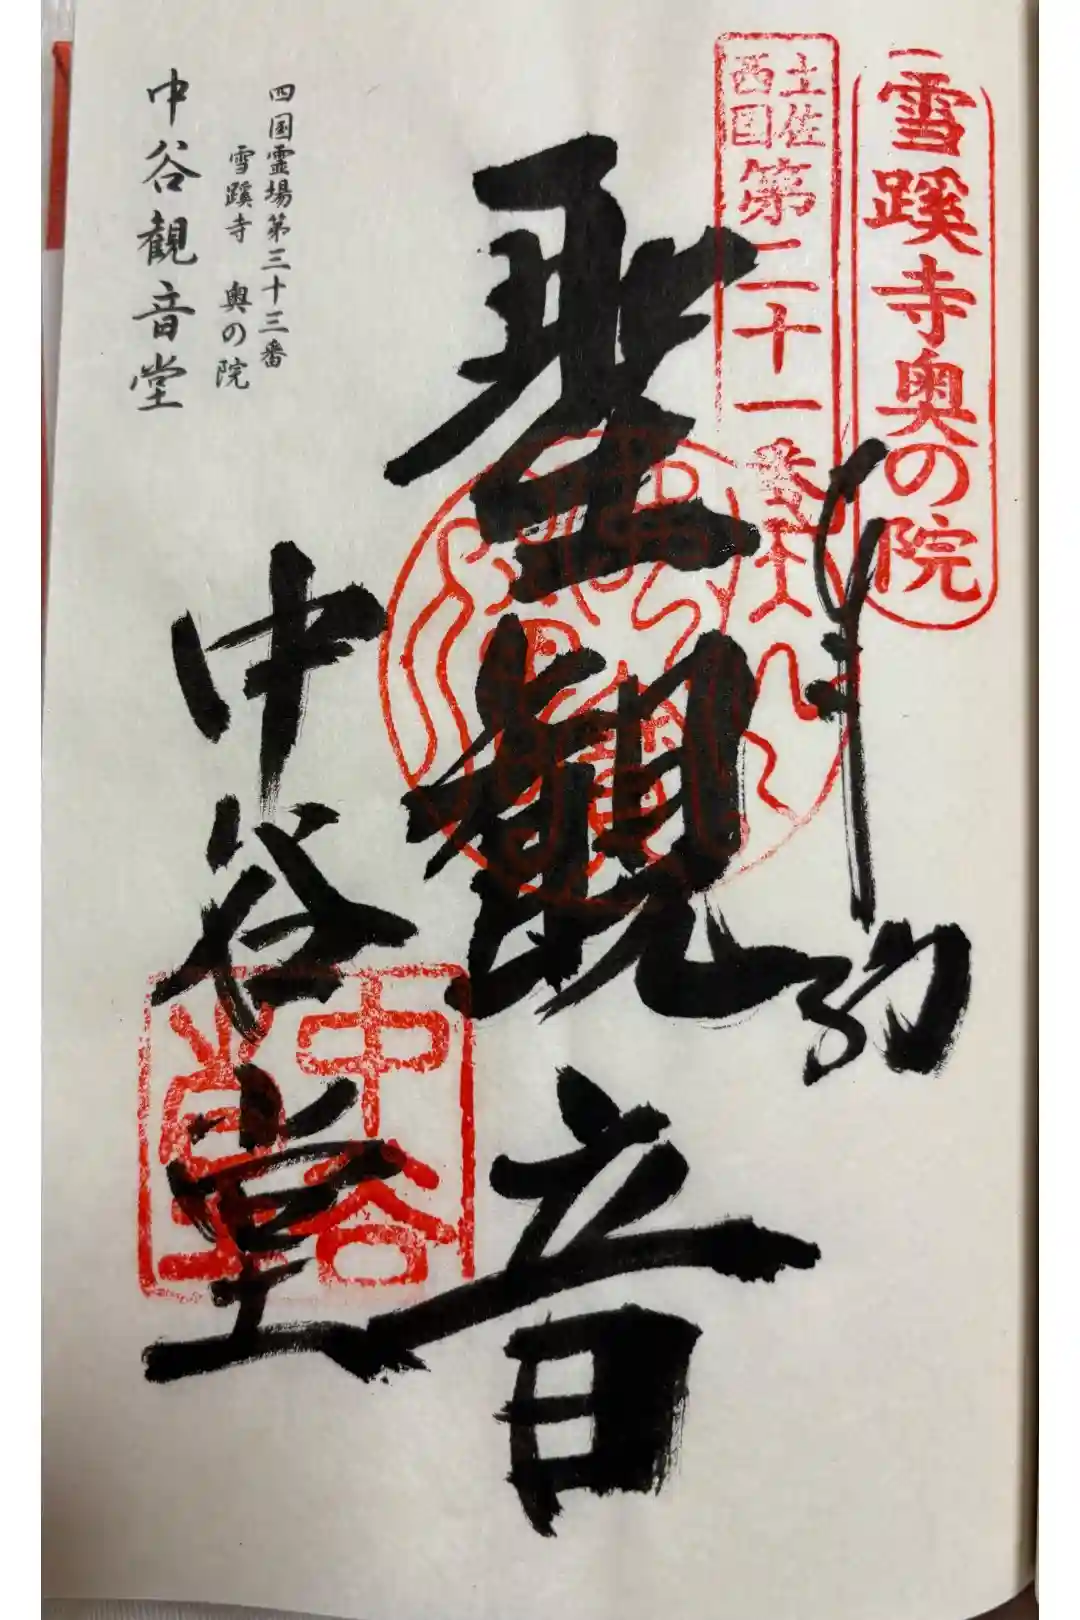 雪蹊寺奥の院
土佐
西国
第二十一番
奉納
聖観音
四国霊場第三十三番
雪蹊寺 奥の院
中谷観音堂
中谷堂
中谷
堂